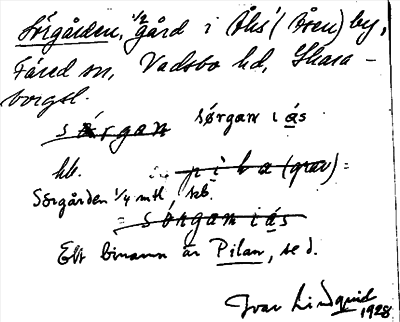 Sörgården, 1/2 gård i Åhs (Åsen) by,
Fåred sn, Vadsbo hd, Skara-
borgsl.
sørgan sørgan i ås
hb. i pila (grav) =
Sörgården 1/4 mtl, skb.
= sørgan i ås
Ett binamn är Pilan, se d.
Ivar Lindquist
1928